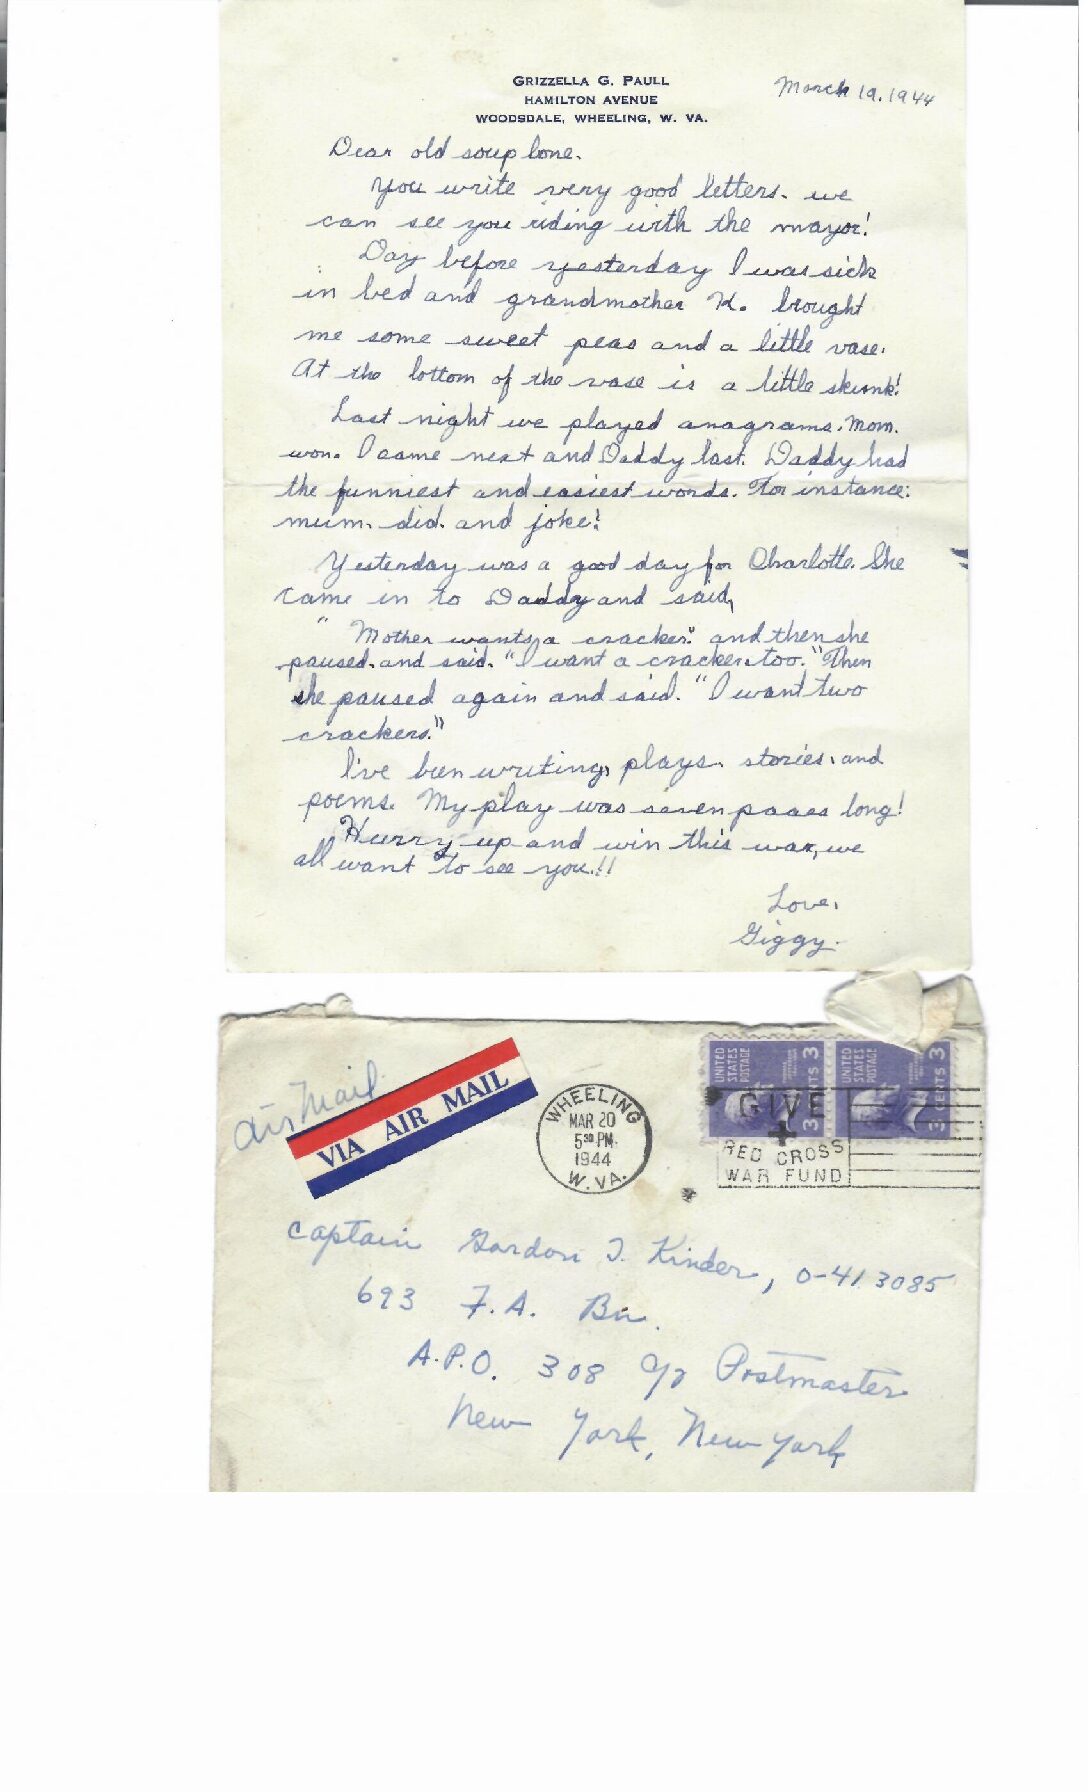 GRIZZELLA G. PAULL
HAMILTON AVENUE
WOODSDALE, WHEELING, W. VA.
March 19, 1944
Dear old soup bone.
You write very good letters. we
can see you riding with the mayor!
Day before yesterday I was sick
in bed and grandmother K. brought
me some sweet peas and a little vase.
At the bottom of the vase is a little skunk!
Last night we played anagrams. Mom.
won. I came next and Daddy last. Daddy had
the funniest and easiest words. For instance:
mum. did. and joke!
Yesterday was a good day for Charlotte. She
came in to Daddy and said,
" Mother wants a cracker." and then she
paused. and said. "I want a cracker too." Then
she paused again and said. "I want two
crackers."
I've been writing, plays. stories. and
poems. My play was seven pages long!
Hurry up and win this war, we
all want to see you.!!
Love.
Giggy.
Air Mail
VIA AIR MAIL
WHEELING
MAR 20
5 30 PM
1944
W. VA.
UNITED STATES POSTAGE
3 CENTS
UNITED STATES POSTAGE
3 CENTS
GIVE
RED CROSS
WAR FUND
Captain Gordon T. Kinder, 0-413085
693 F.A. Bn.
A.P.O. 308 c/o Postmaster
New York, New York